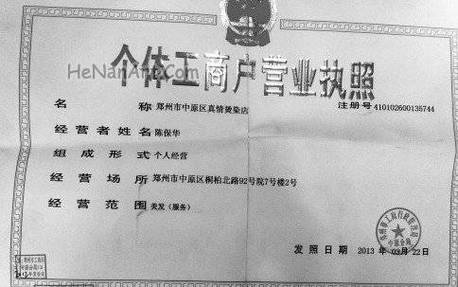 HeNanArt.Com
个体工商户营业执照
名 称 郑州市中原区真情烫染店 注册号 410102600135744
经营者姓名 陈保华
组成形式 个人经营
经营场所 郑州市中原区桐柏北路92号院7号楼2号
经营范围 美发（服务）
发照日期 2013年03月22日